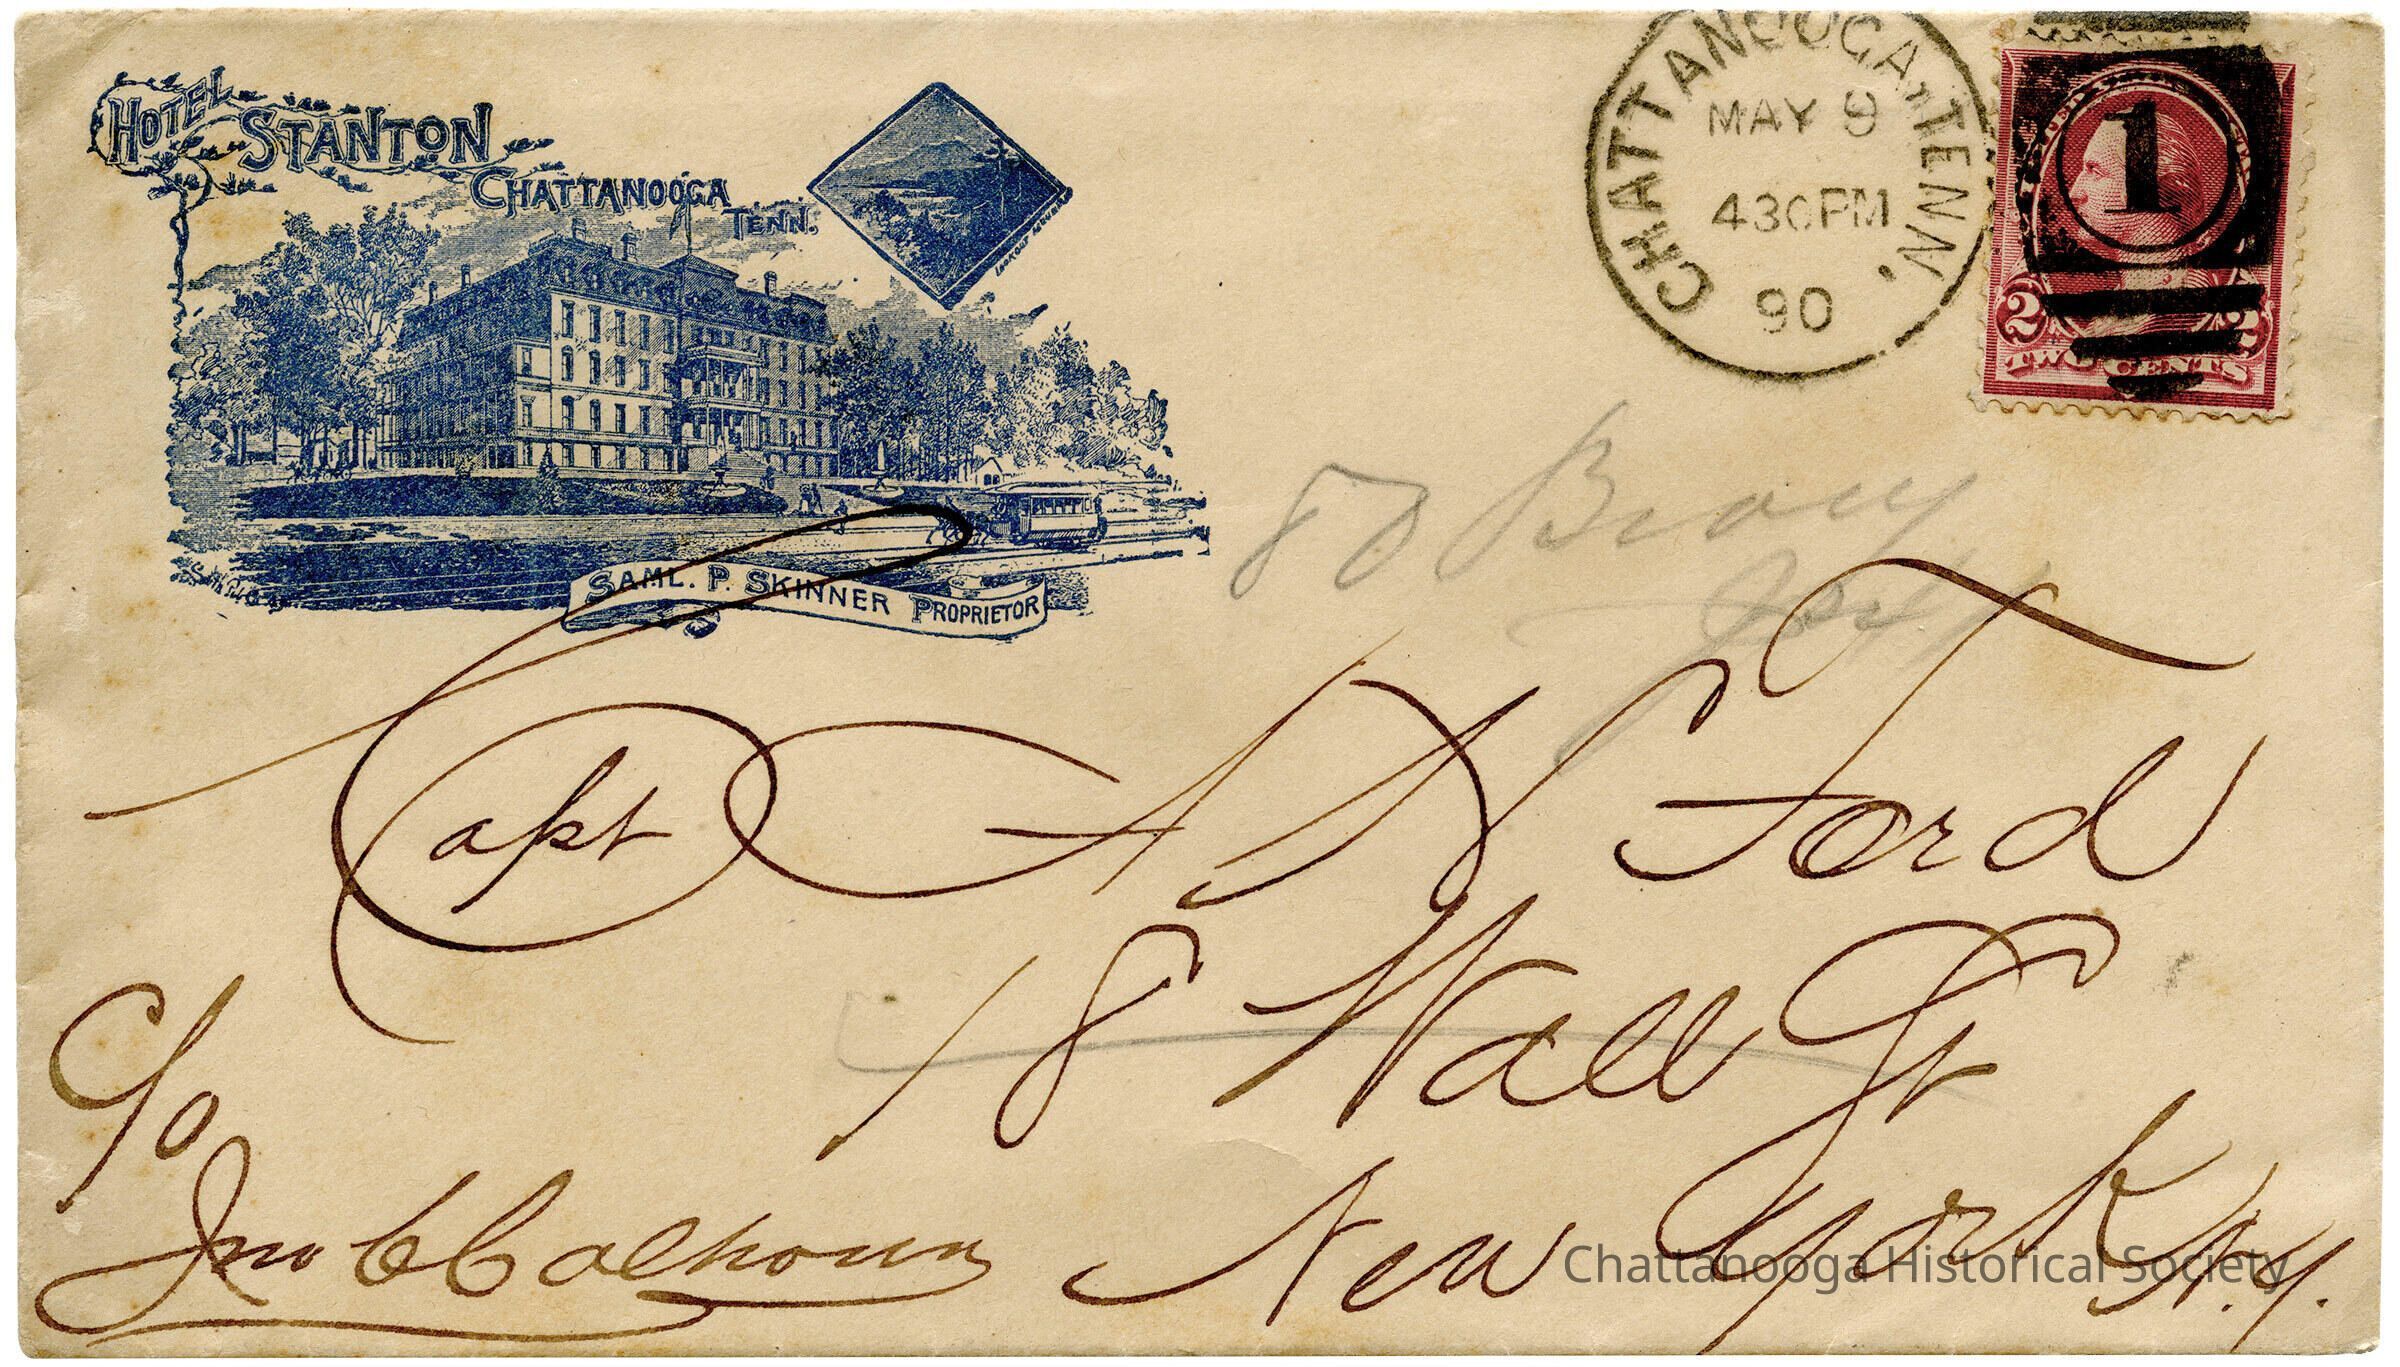 HOTEL STANTON
CHATTANOOGA
TENN.
LOOKOUT MOUNTAIN
SAML. P. SKINNER PROPRIETOR
CHATTANOOGA, TENN.
MAY 9
430PM
90
1
2 2
TWO CENTS
80 Broadway
Capt A N Ford
18 Wall St
New York N.Y.
C/o
Jno C Calhoun
Chattanooga Historical Society